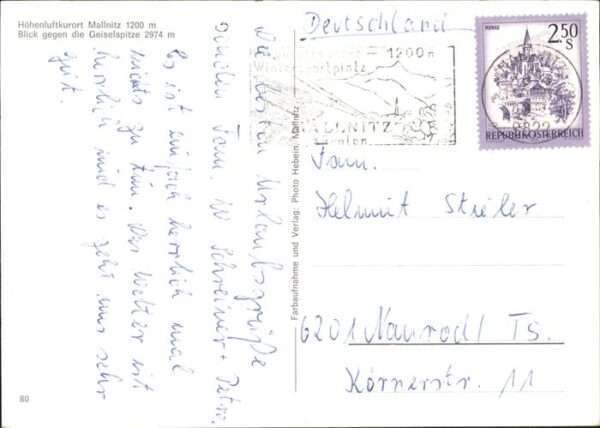 Höhenluftkurort Mallnitz 1200 m
Blick gegen die Geiselspitze 2974 m
Die besten Urlaubsgrüße
Fam. W Schreiner + Petra.
Es ist einfach herrlich mal
nichts zu tun. Das Wetter ist
herrlich und es geht uns sehr
gut.
80
Farbaufnahme und Verlag: Photo Hebein, Mallnitz
Deutschland
1200m
MALLNITZ
2.50
S
REPUBLIK ÖSTERREICH
Fam.
Helmut Stieler
6201 Naurod/Ts.
Körnerstr. 11